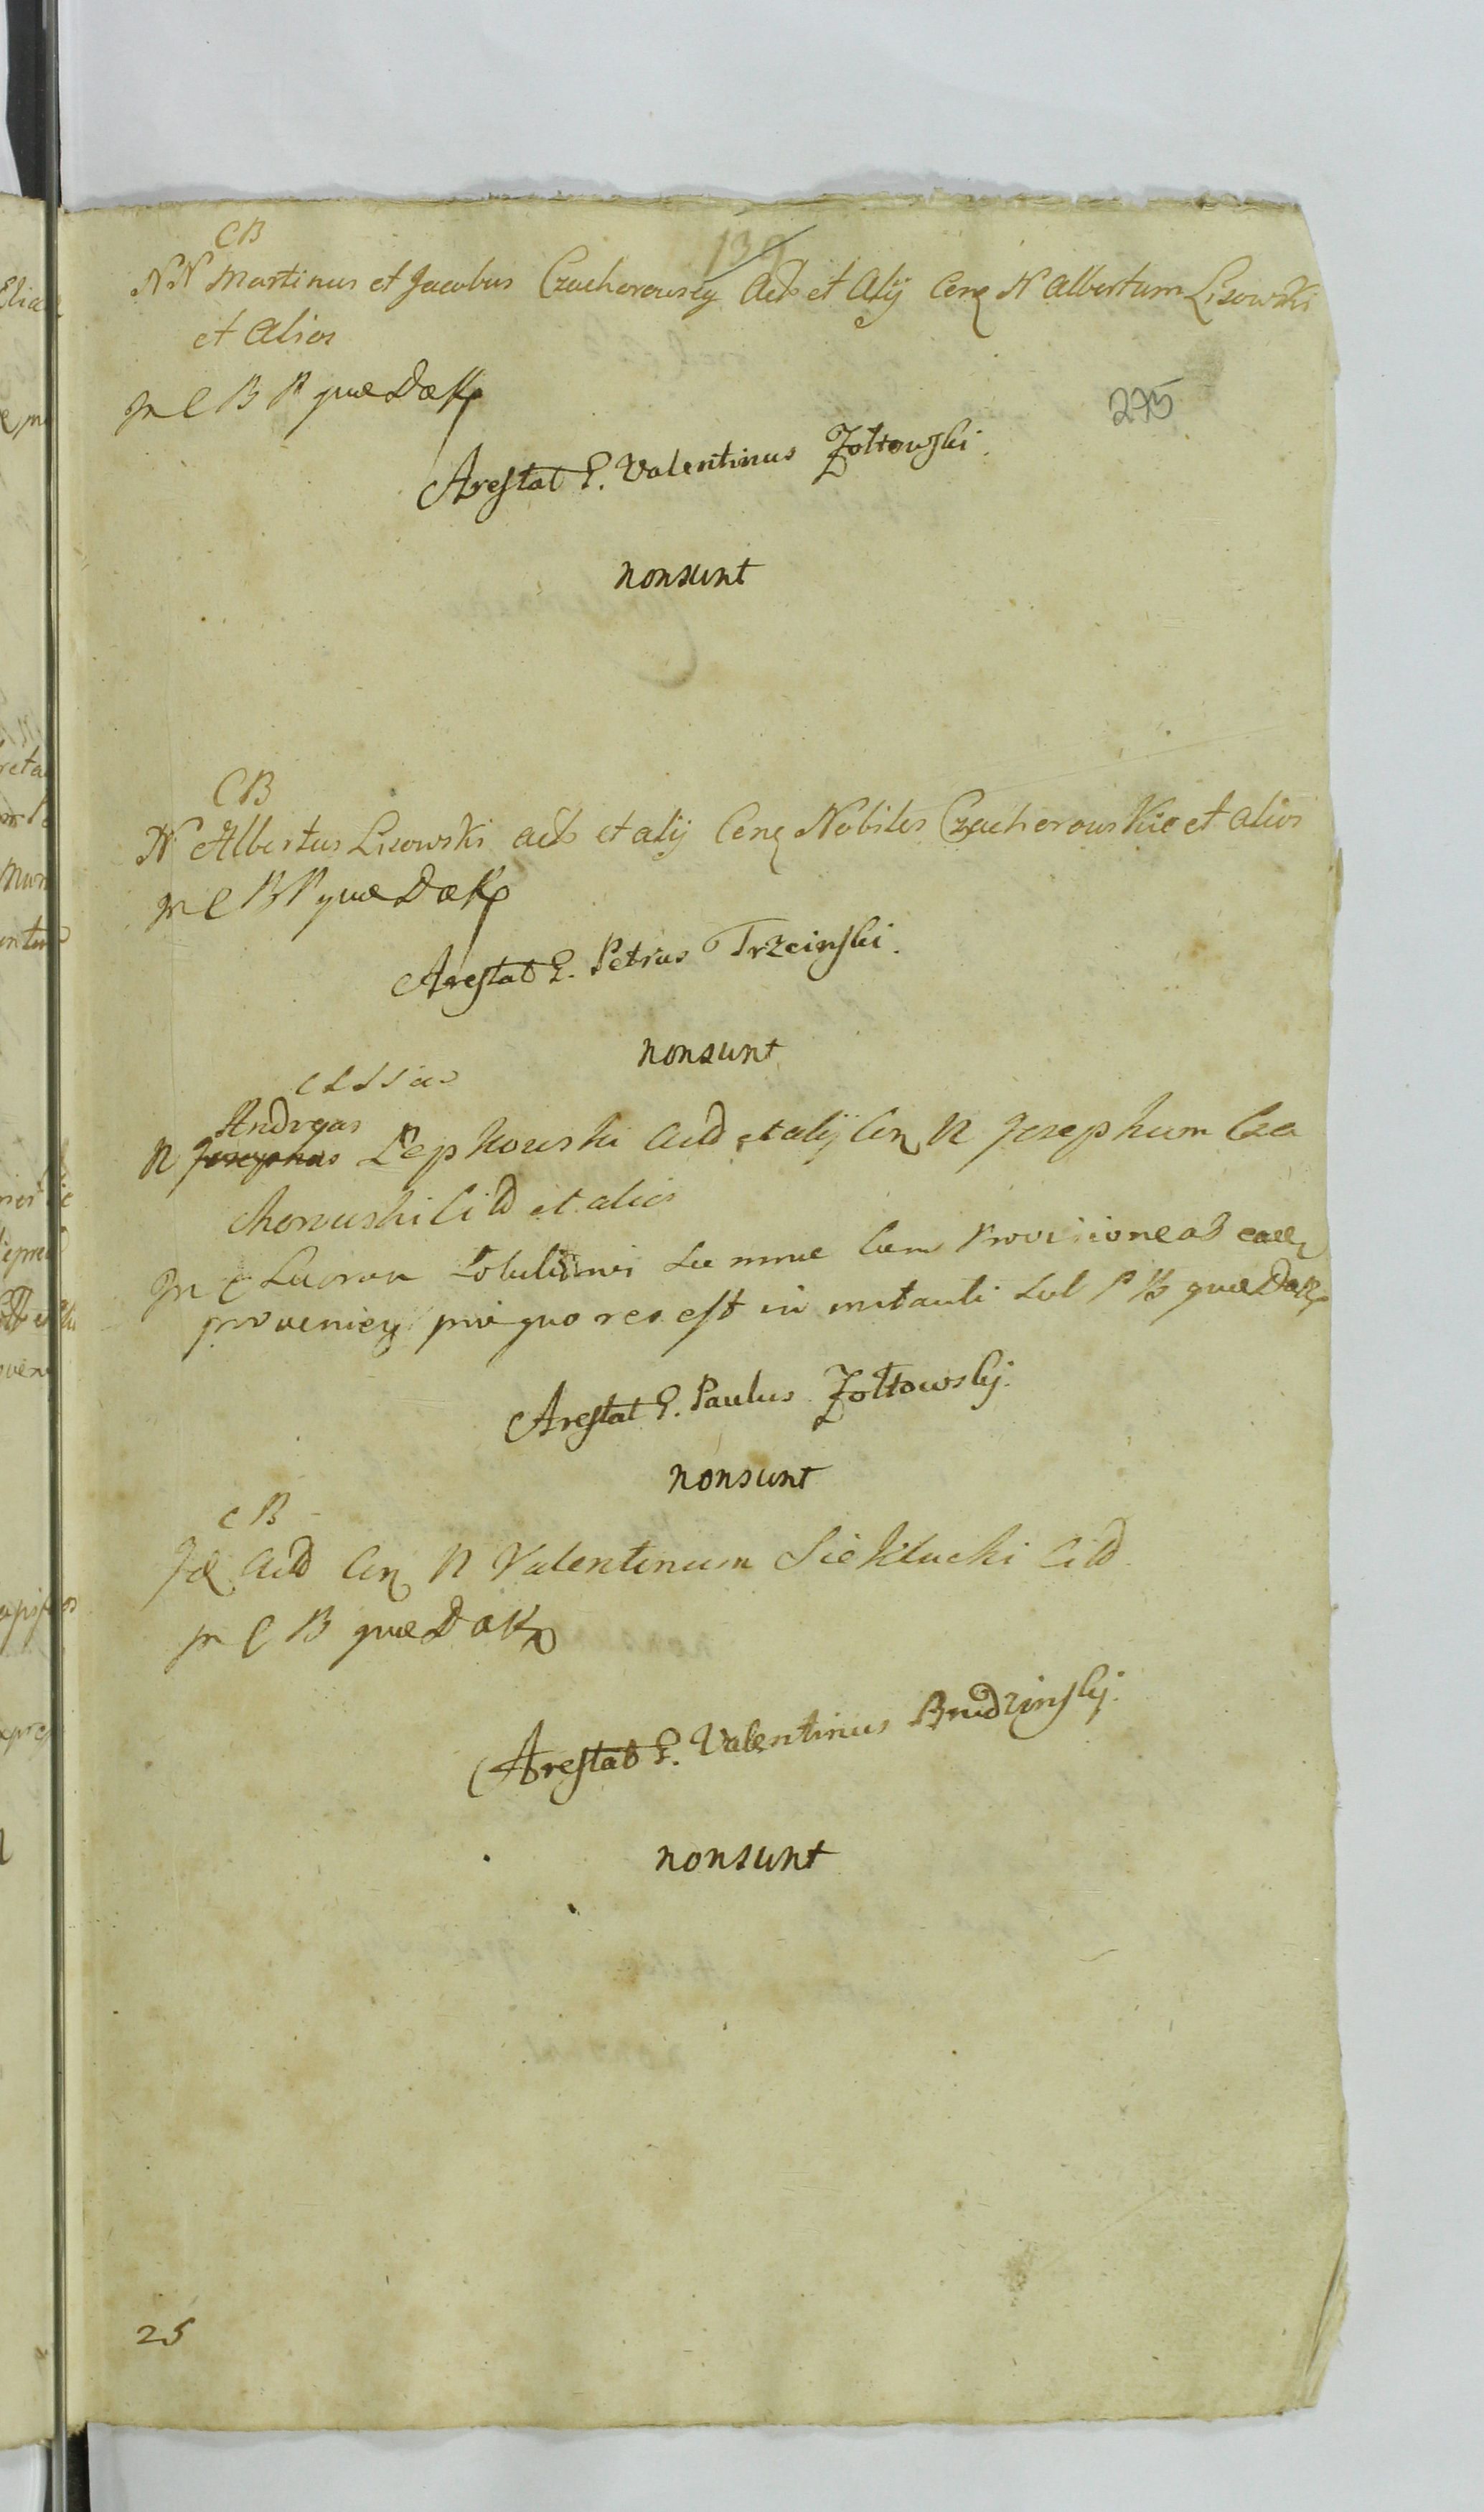 139
CB
NN Martinus et Jacobus Czachorowscy Act et Alij Cenz N Albertum Lisowski
et Alios
In C B P quae DaKp
275
Arestat G. Valentinus Żołtowski.
nonsunt
CB
N Albertus Lisowski act et alij Cenz Nobiles Czachorowskie et alios
In C B P quae DaKp
Arestat G. Petrus Trzcinski.
nonsunt
Andreas
N Josephus Lepkowski Actd et alij Cen N Josephum Cza
chorowski Citd et alios
In C summae Cum Provisione ab eaez
provenien pro quo res est in instanti sol P B quae DaKp
Arestat G. Paulus Żołtowsky.
nonsunt
C B
Id Actd Cen N Valentinum Siekłucki Citd
In C B quae DaKp
Arestat G. Valentinus Brudzinsky.
nonsunt
25